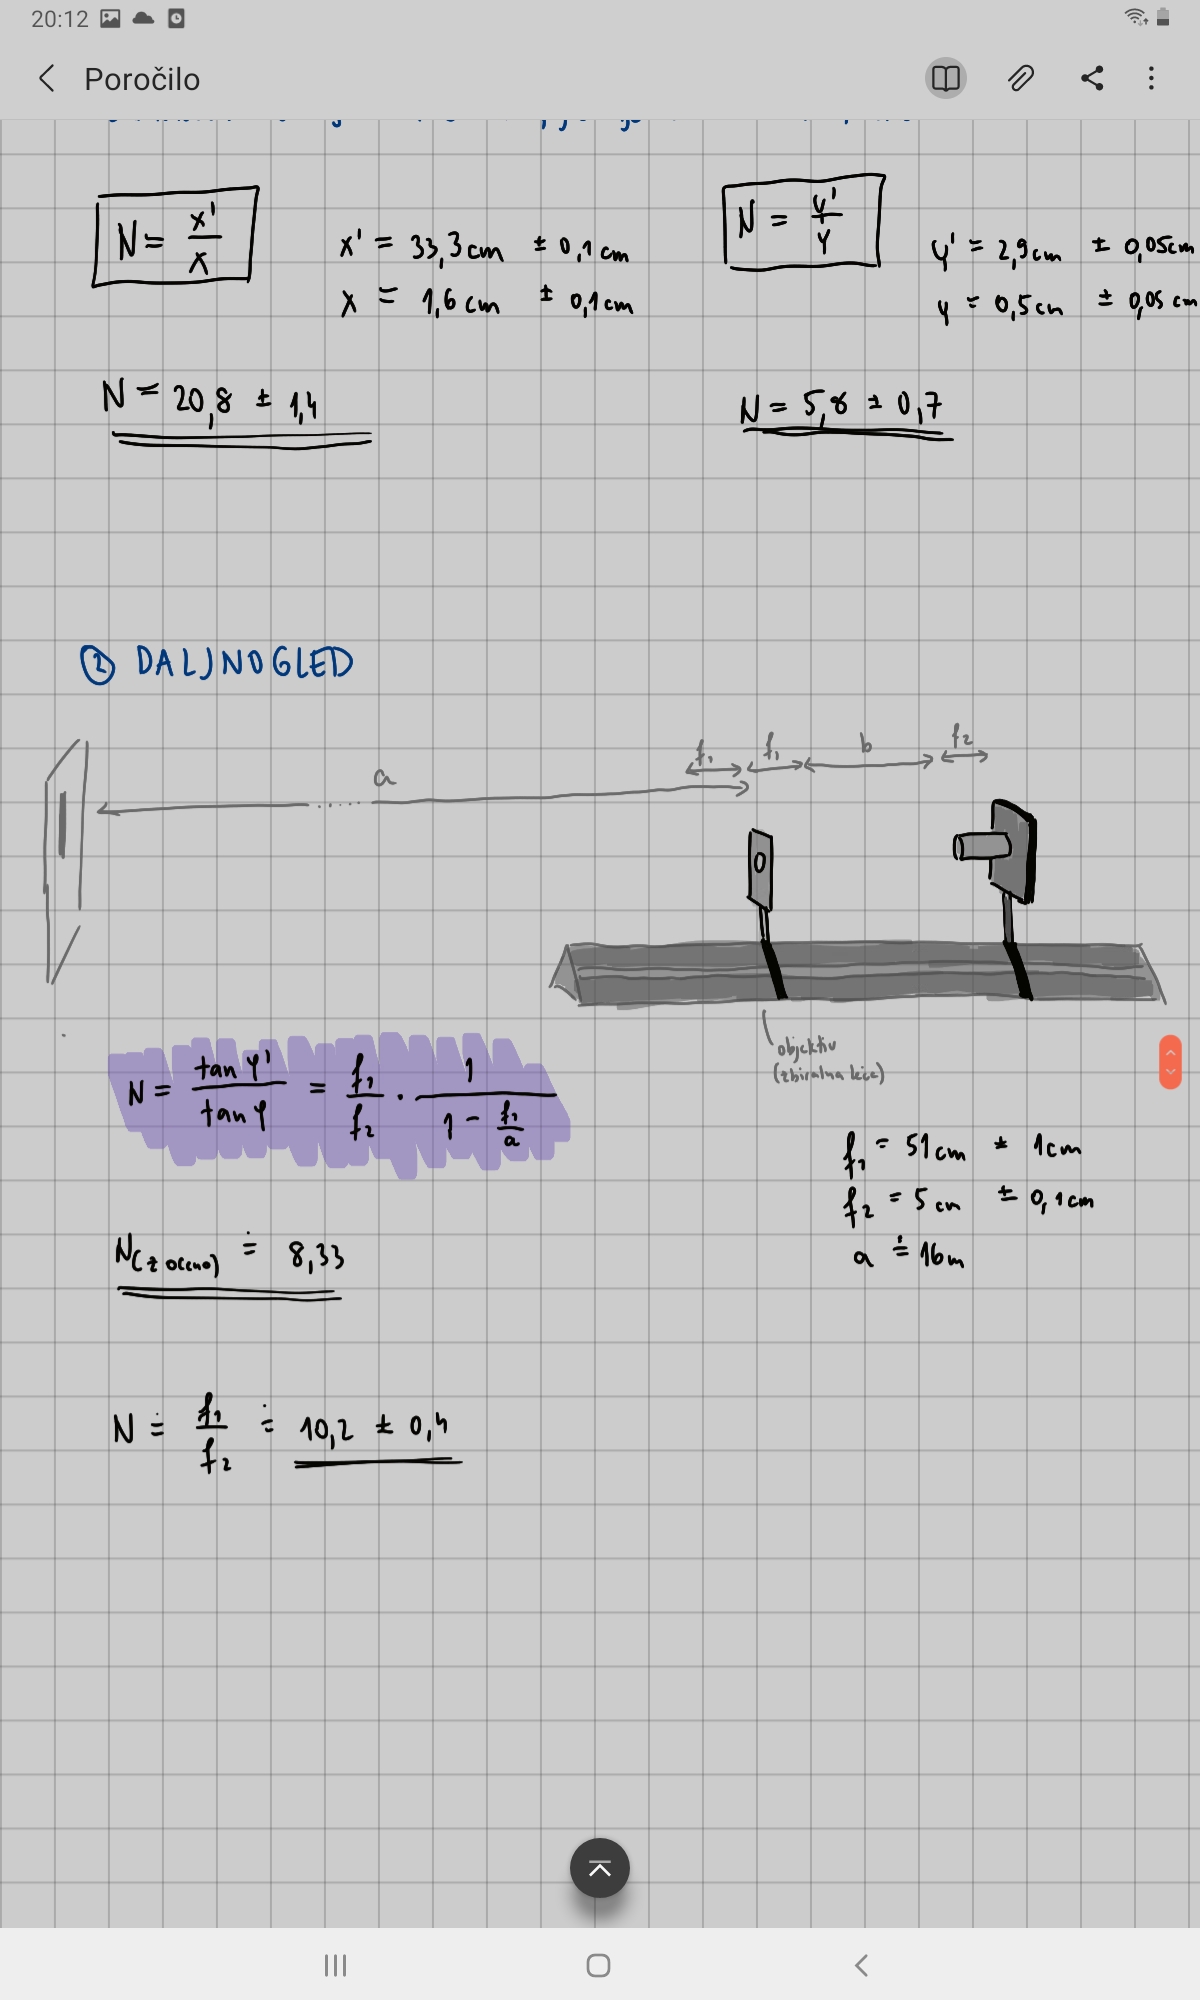 20:12
Poročilo
N = x'/x
x' = 33,3 cm ± 0,1 cm
x = 1,6 cm ± 0,1 cm
N = 20,8 ± 1,4
N = y'/y
y' = 2,9 cm ± 0,05 cm
y = 0,5 cm ± 0,05 cm
N = 5,8 ± 0,7
② DALJNOGLED
a
f₁ f₁ b f₂
objektiv
(zbiralna leča)
N = tan φ'/tan φ = f₁/f₂ · 1/(1 - f₁/a)
f₁ = 51 cm ± 1 cm
f₂ = 5 cm ± 0,1 cm
a ≐ 16 m
N(z oceno) ≐ 8,33
N ≐ f₁/f₂ ≐ 10,2 ± 0,4